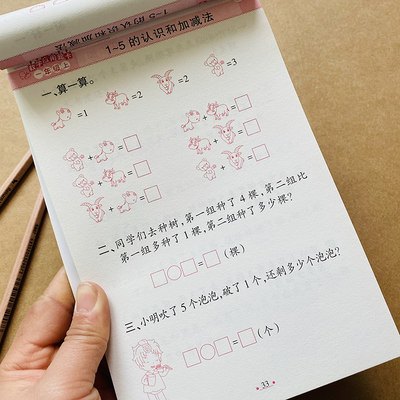 1~5的认识和加减法
一年级上
1~5的认识和加减法
一、算一算。
=1 =2 =2 =3
+ =□ + =□
+ =□ + =□
+ =□ + =□
+ =□
二、同学们去种树,第一组种了4棵,第二组比
第一组多种了1棵,第二组种了多少棵?
□○□=□(棵)
三、小明吹了5个泡泡,破了1个,还剩多少个泡泡?
□○□=□(个)
33